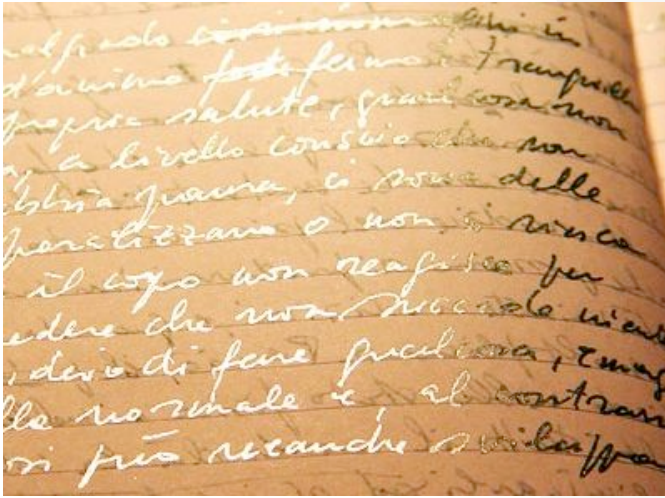 d'animo fermo e tranquillo
propria salute, qualcosa non
a livello conscio che non
abbia paura, ci sono delle
paralizzano o non si riesca
il corpo non reagisce per
vedere che non succede nient
di fare qualcosa, e mag
normale è, al contrar
può neanche svilupp